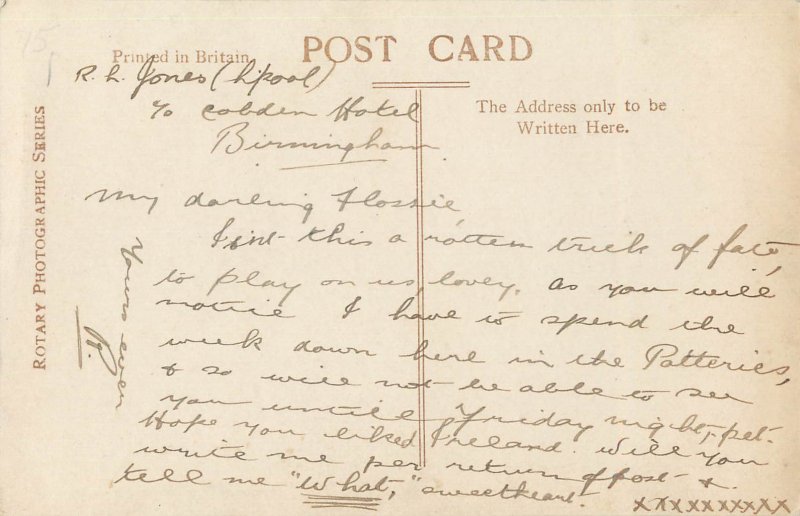 75
Printed in Britain
POST CARD
The Address only to be
Written Here.
ROTARY PHOTOGRAPHIC SERIES
R. L. Jones (L'pool)
c/o Cobden Hotel
Birmingham
My darling Flossie
Isn't this a rotten trick of fate,
to play on us, lovey. As you will
notice I have to spend the
week down here in the Potteries,
& so will not be able to see
you untill Friday night, pet.
Hope you liked Ireland. Will you
write me per return of post &
tell me "What," sweetheart.
xxxxxxxxxx
Yours ever